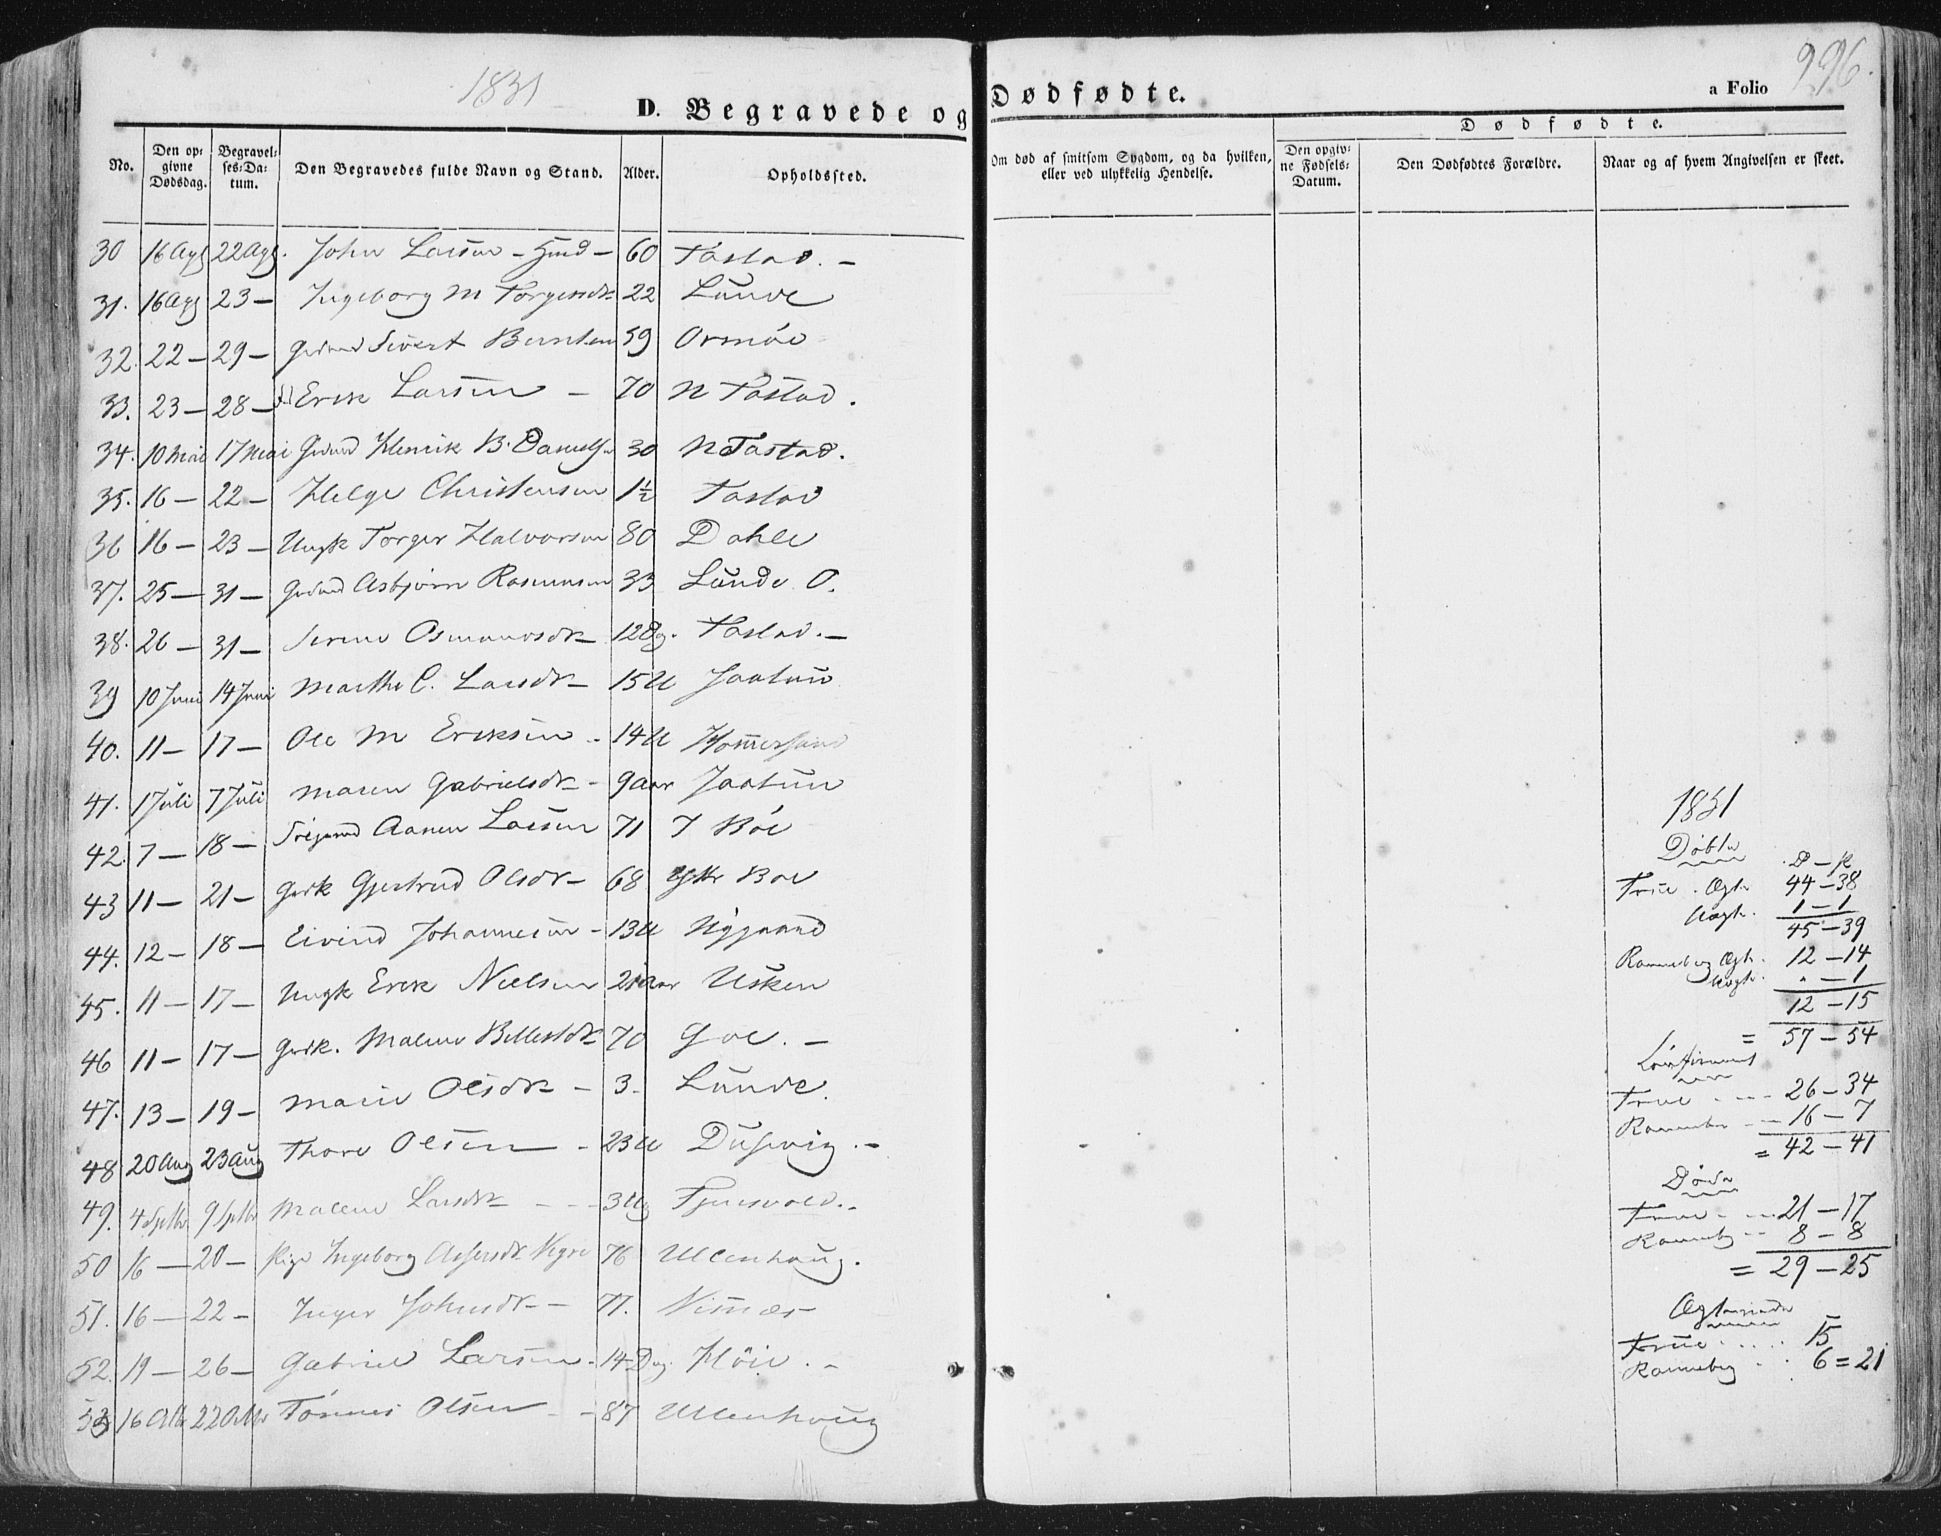 1831
996.
D. Begravede og Dødfødte.
a Folio
No.
Den opgivne Dødsdag.
Begravelses-Datum.
Den Begravedes fulde Navn og Stand.
Alder.
Opholdssted.
Om død af smitsom Sygdom, og da hvilken, eller ved ulykkelig Hendelse.
Dødfødte.
Den opgivne Fødsels-Datum.
Den Dødfødtes Forældre.
Naar og af hvem Angivelsen er skeet.
30 16 Apl 22 Apl. John Larsen 60 Tastad. –
31. 16 Apl 23 – Ingeborg M Torgersdr 22 Lunde
32. 22 – 29 – Gudmd Sivert Berntsen 59 Ormöe
33. 23 – 28 – Erik Larsen – 70 N Tastad.
34. 10 Mai 17 Mai Gudmd Henrik B. Danielsen 30 N Tastad.
35. 16 – 22 – Helge Christensen 1½ Tastad
36 16 – 23 – Ungk Torger Halvorsen 80 Dahle
37. 25 – 31 – Gudmd Asbjörn Rasmussen 33 Lunde O.
38. 26 – 31 – Serine Osmundsdr 12 Dg. Tastad. –
39 10 Juni 14 Juni Marthe C. Larsdr – 15 U Jaatun
40. 11 – 17 – Ole M Eriksen – 14 U Hommersand
41. 1 Juli 7 Juli Maren Gabrielsdr – 9 aar Jaatun
42. 7 – 18 – Aanen Larsen 71 I Böe
43 11 – 21 – Gjertrud Olsdr – 68 Ytr Boe
44. 12 – 18 – Eivind Johannesen – 13 U Nygaard
45. 11 – 17 – Ungk Erik Nielsen 21 aar Usken
46 11 – 17 – Malene Billestdr 70 Goe. –
47. 13 – 19 – Marie Olsdr – 3 – Lunde.
48 20 Aug 23 Aug Thore Olsen – 23 U Dusevig. –
49. 4 Septbr 9 Septbr Malene Larsdr – – 3 Ug Tjensvold. –
50 16 – 20 – Pige Ingeborg Assersdr 76 Ullenhaug.
51. 16 – 22 – Inger Johnsdr – 77.
52. 19 – 26 – Gabriel Larsen – 14 Dg. Höie. –
53 16 Octb 22 Octbr Tönnes Olsen – – 87 Ullenhoug
1831
Döbte
D – P
Frue . Ægte 44 – 38
Uægt. 1 – 1
45 – 39
Ranneberg Ægt. 12 – 14
Uægt. . – 1
12 – 15
= 57 – 54
Confirmeret
Frue – – – 26 – 34
Ranneberg – – 16 – 7
= 42 – 41
Döde
Frue – – – 21 – 17
Ranneberg – – 8 – 8
= 29 – 25
Ægteviede
Frue . . . . 15
Ranneberg . . 6 = 21